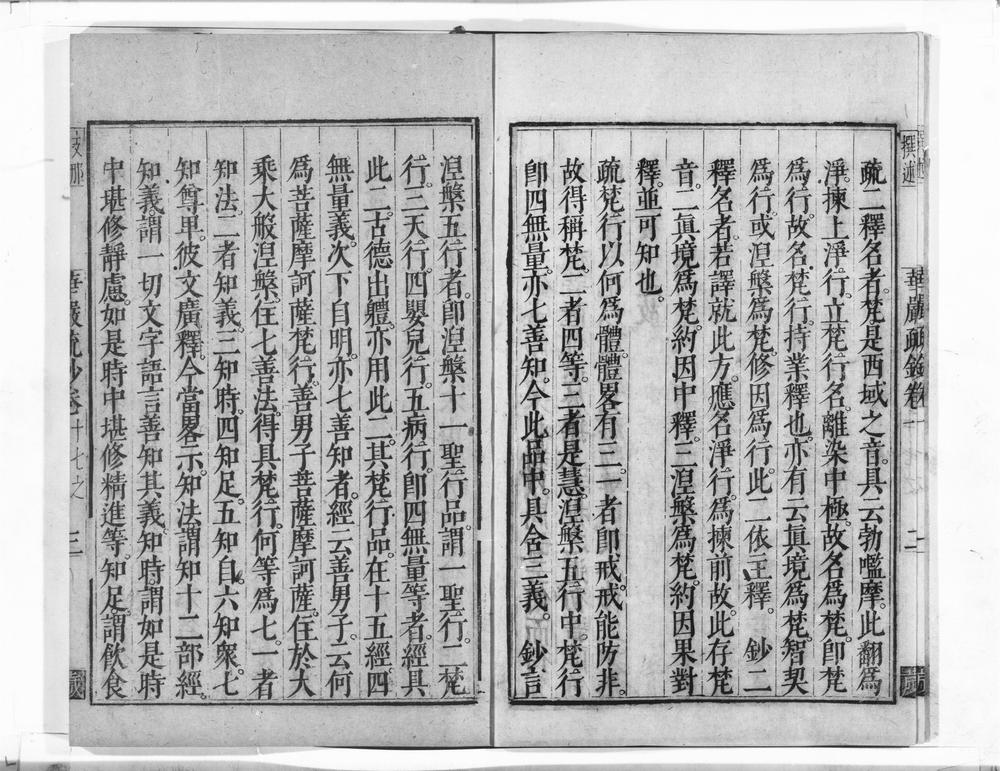 疏二釋名者。梵是西域之音。具云勃嚂摩。此翻爲
淨。揀上淨行。立梵行名。離染中極。故名爲梵。卽梵
爲行。故名梵行。持業釋也。亦有云。眞境爲梵。智契
爲行。或涅槃爲梵。修因爲行。此二依主釋。 鈔二
釋名者。若譯就此方。應名淨行。爲揀前故。此存梵
音。一眞境爲梵。約因中釋。二涅槃爲梵。約因果對
釋。並可知也。
疏梵行以何爲體。體畧有三。一者卽戒。戒能防非。
故得稱梵。二者四等。三者是慧。涅槃五行中。梵行
卽四無量。亦七善知。今此品中。具含三義。 鈔言
涅槃五行者。卽涅槃十一聖行品。謂一聖行。二梵
行。三天行。四嬰兒行。五病行。卽四無量等者。經具
此二。古德出體。亦用此二。其梵行品。在十五經。四
無量義。次下自明。亦七善知者。經云善男子。云何
爲菩薩摩訶薩梵行。善男子。菩薩摩訶薩。住於大
乘大般涅槃。住七善法。得具梵行。何等爲七。一者
知法。二者知義。三知時。四知足。五知自。六知衆。七
知尊卑。彼文廣釋。今當畧示。知法。謂知十二部經。
知義。謂一切文字語言善知其義。知時。謂如是時
中堪修靜慮。如是時中堪修精進等。知足。謂飲食
撰述
華嚴疏鈔卷
二
華嚴疏鈔卷十七之
三